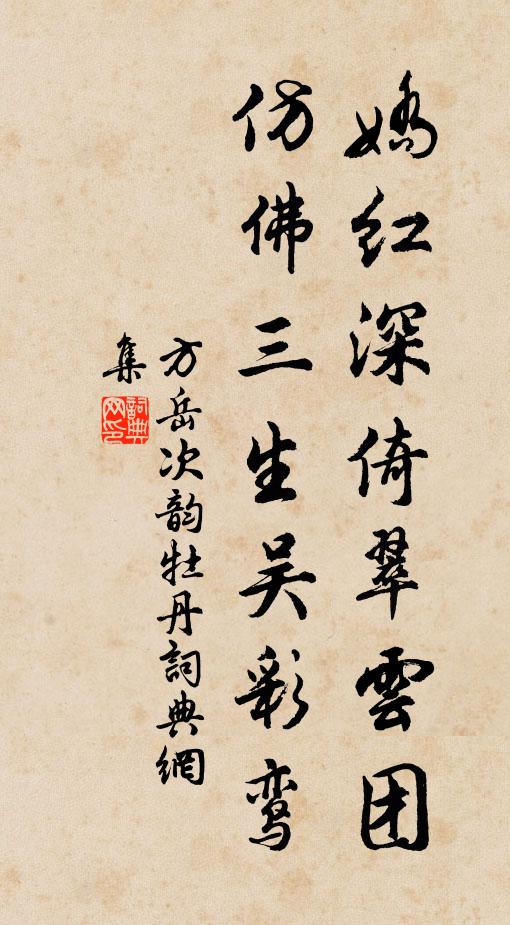 娇红深倚翠雲团
仿佛三生吴彩鸾
方岳次韵牡丹詞典網
集
詞典网印